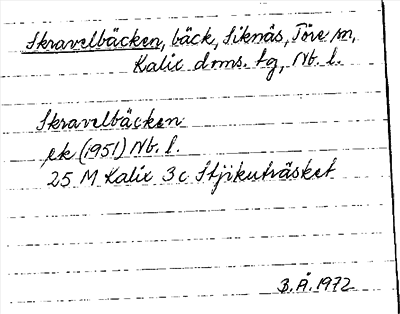 Skravelbäcken, bäck, Siknäs, Töre sn,
Kalix doms. tg, Nb. l.
Skravelbäcken
ek (1951) Nb. l.
25 M Kalix 3c Stjikuträsket
B.Å. 1972